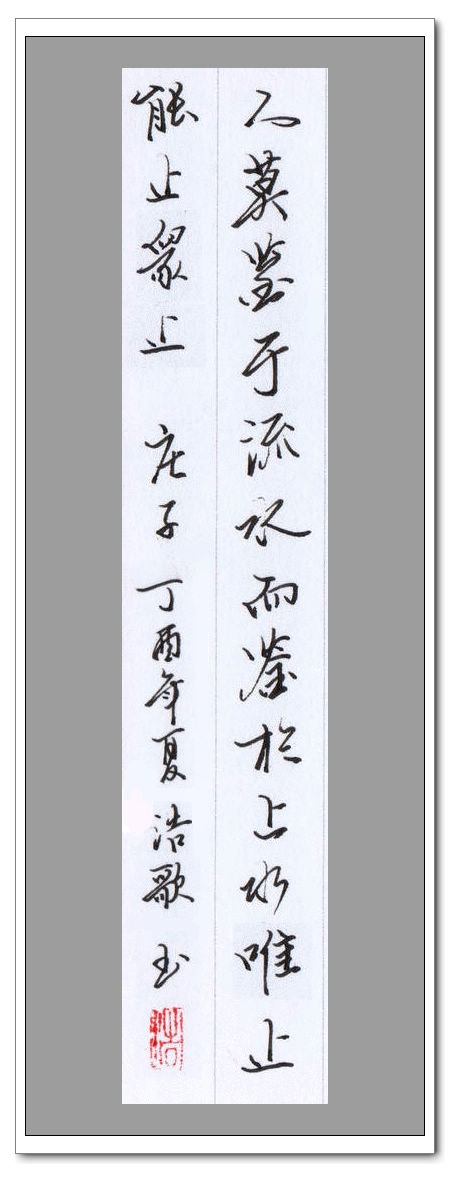 人莫鉴于流水而鉴於止水唯止
能止衆止 庄子 丁酉年夏 浩歌 书
浩